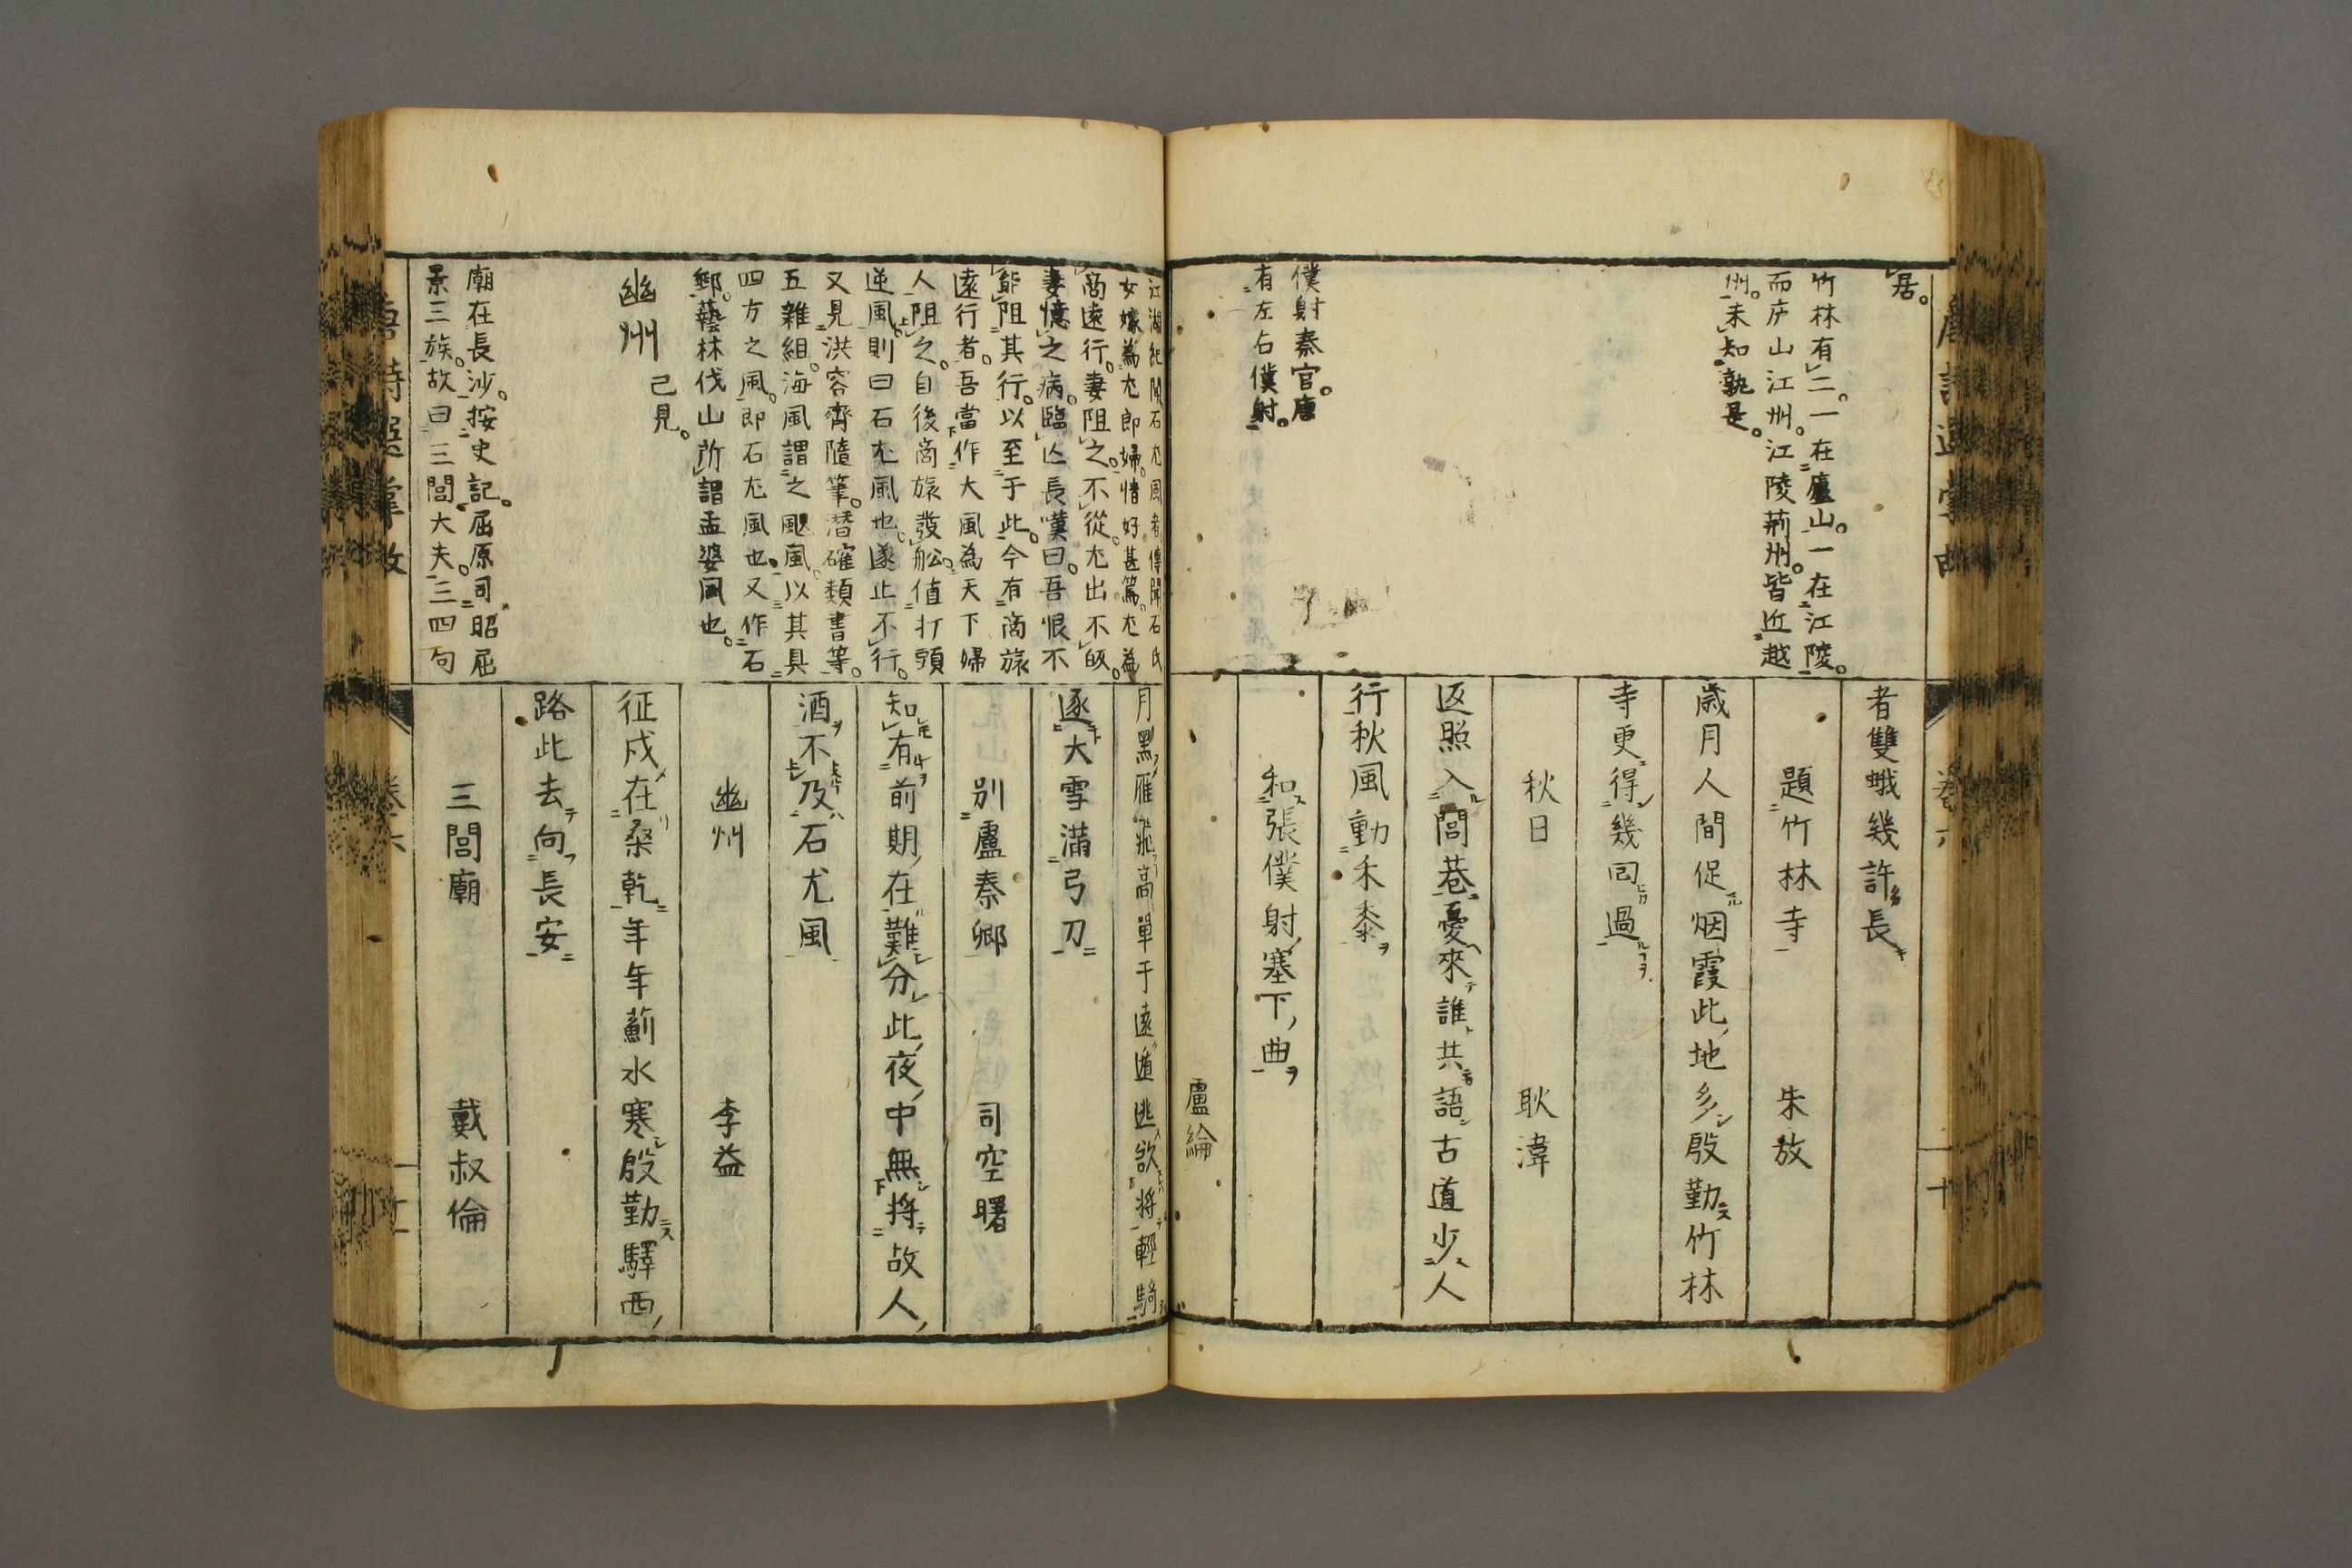 居。
竹林有二。一在廬山。一在江陵。
而庐山江州。江陵荊州。皆近越
州。未知孰是。
僕射秦官。唐
有左右僕射。
者雙蛾幾許長
題竹林寺 朱放
歲月人間促烟霞此地多殷勤竹林
寺更得幾回過
秋日 耿湋
返照入閭巷憂來誰共語古道少人
行秋風動禾黍
和張僕射塞下曲
盧綸
江湖紀聞石尤風者傳聞石氏
女嫁為尤郎婦。情好甚篤。尤為
商遠行。妻阻之。不從。尤出不皈。
妻憶之病。臨亾長嘆曰。吾恨不
能阻其行。以至于此。今有商旅
遠行者。吾當作大風為天下婦
人阻之。自後商旅發舩。值打頭
逆風則曰石尤風也。遂止不行。
又見洪容齊隨筆。潛確類書等。
五雜組。海風謂之颶風。以其具
四方之風。即石尤風也。又作石
郵。藝林伐山所謂孟婆風也。
幽州 已見。
廟在長沙。按史記。屈原司昭屈
景三族。故曰三閭大夫。三四句
月黑雁飛高單于遠遁逃欲將輕騎
逐大雪滿弓刀
別盧秦卿 司空曙
知有前期在難分此夜中無將故人
酒不及石尤風
幽州 李益
征戍在桑乾年年薊水寒殷勤驛西
路此去向長安
三閭廟 戴叔倫
卷六